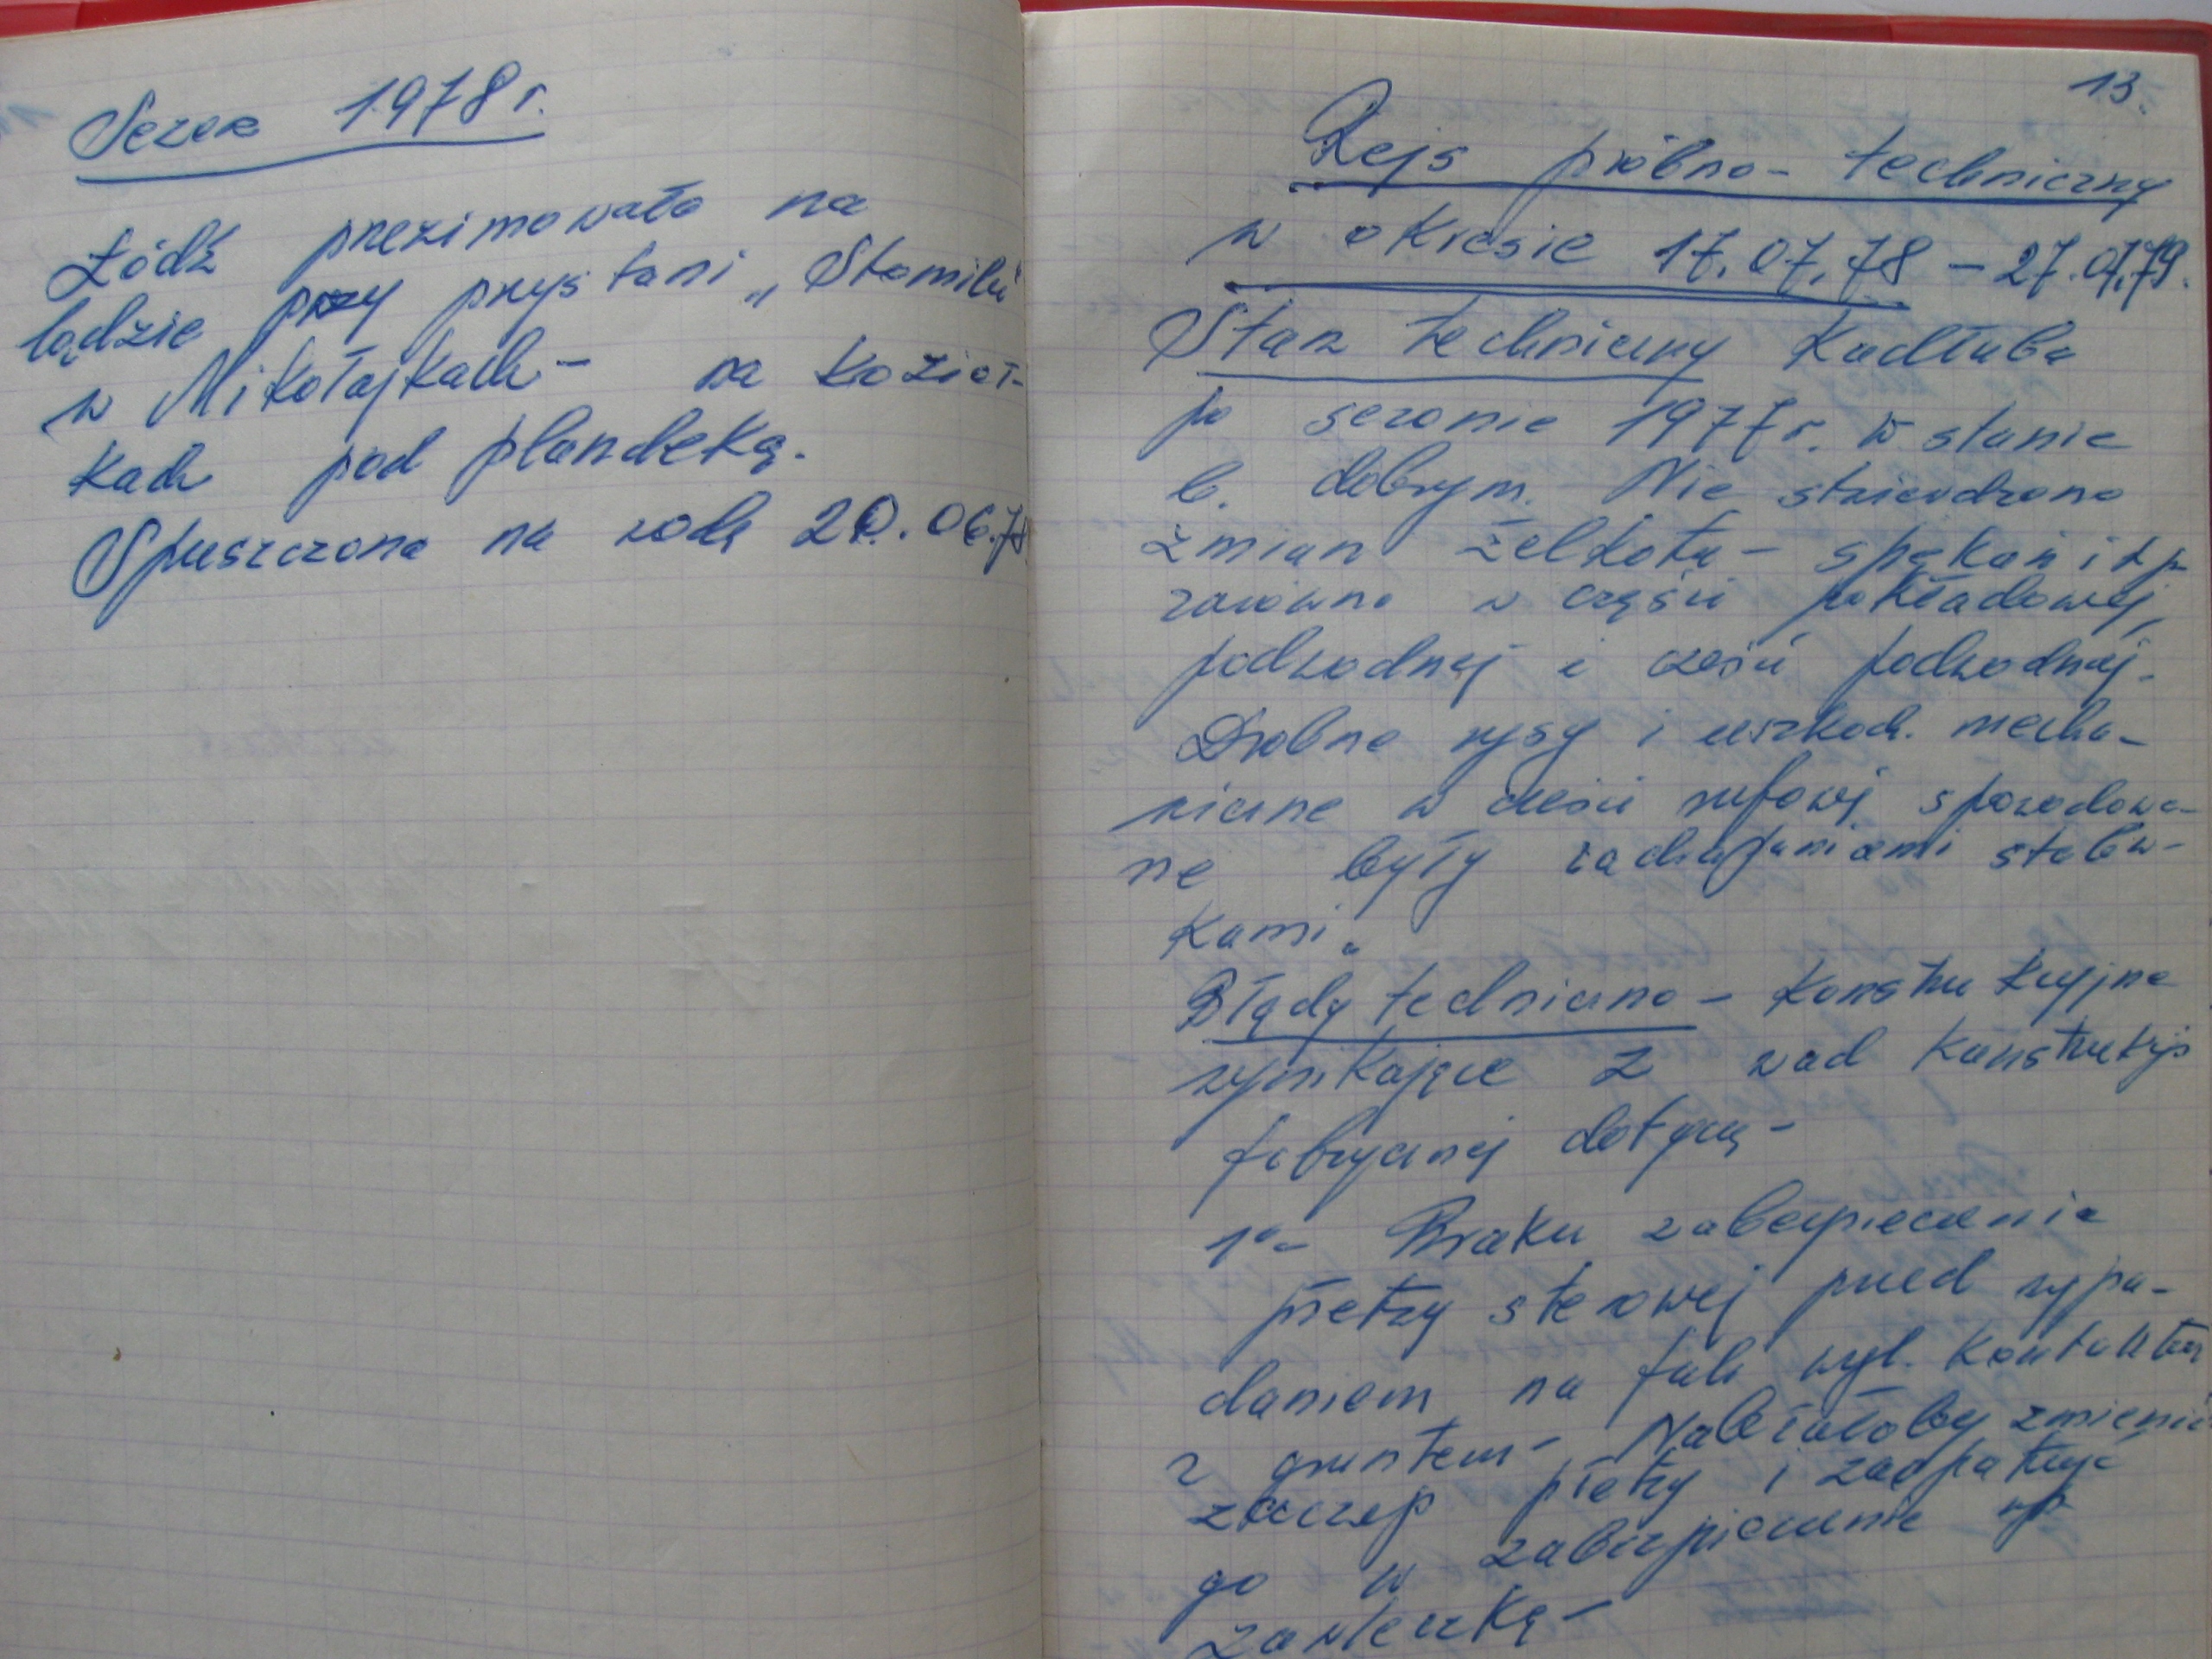 Sezon 1978 r.
Łódź przezimowała na
lądzie przy przystani „Stomilu"
w Mikołajkach - na kozioł-
kach pod plandeką.
Spuszczona na wodę 20.06.78
13.
Rejs próbno-techniczny
w okresie 17.07.78 - 27.07.78.
Stan techniczny kadłuba
po sezonie 1977 r. w stanie
b. dobrym. Nie stwierdzono
zmian żelkotu - spękań itp
zarówno w części pokładowej,
podwodnej i części podwodnej.
Drobne rysy i uszkodz. mecha-
niczne w części rufowej spowodowa-
ne były zachaczaniami stalów-
kami.
Błędy techniczno - konstrukcyjne
wynikające z wad konstrukcji
fabrycznej dotyczą -
1° - Braku zabezpieczenia
płetwy sterowej przed wypa-
daniem na fali wzgl. kontaktu
z gruntem - Należałoby zmienić
zaczep płetwy i zaopatrzyć
go w zabezpieczenie np
zawleczką -